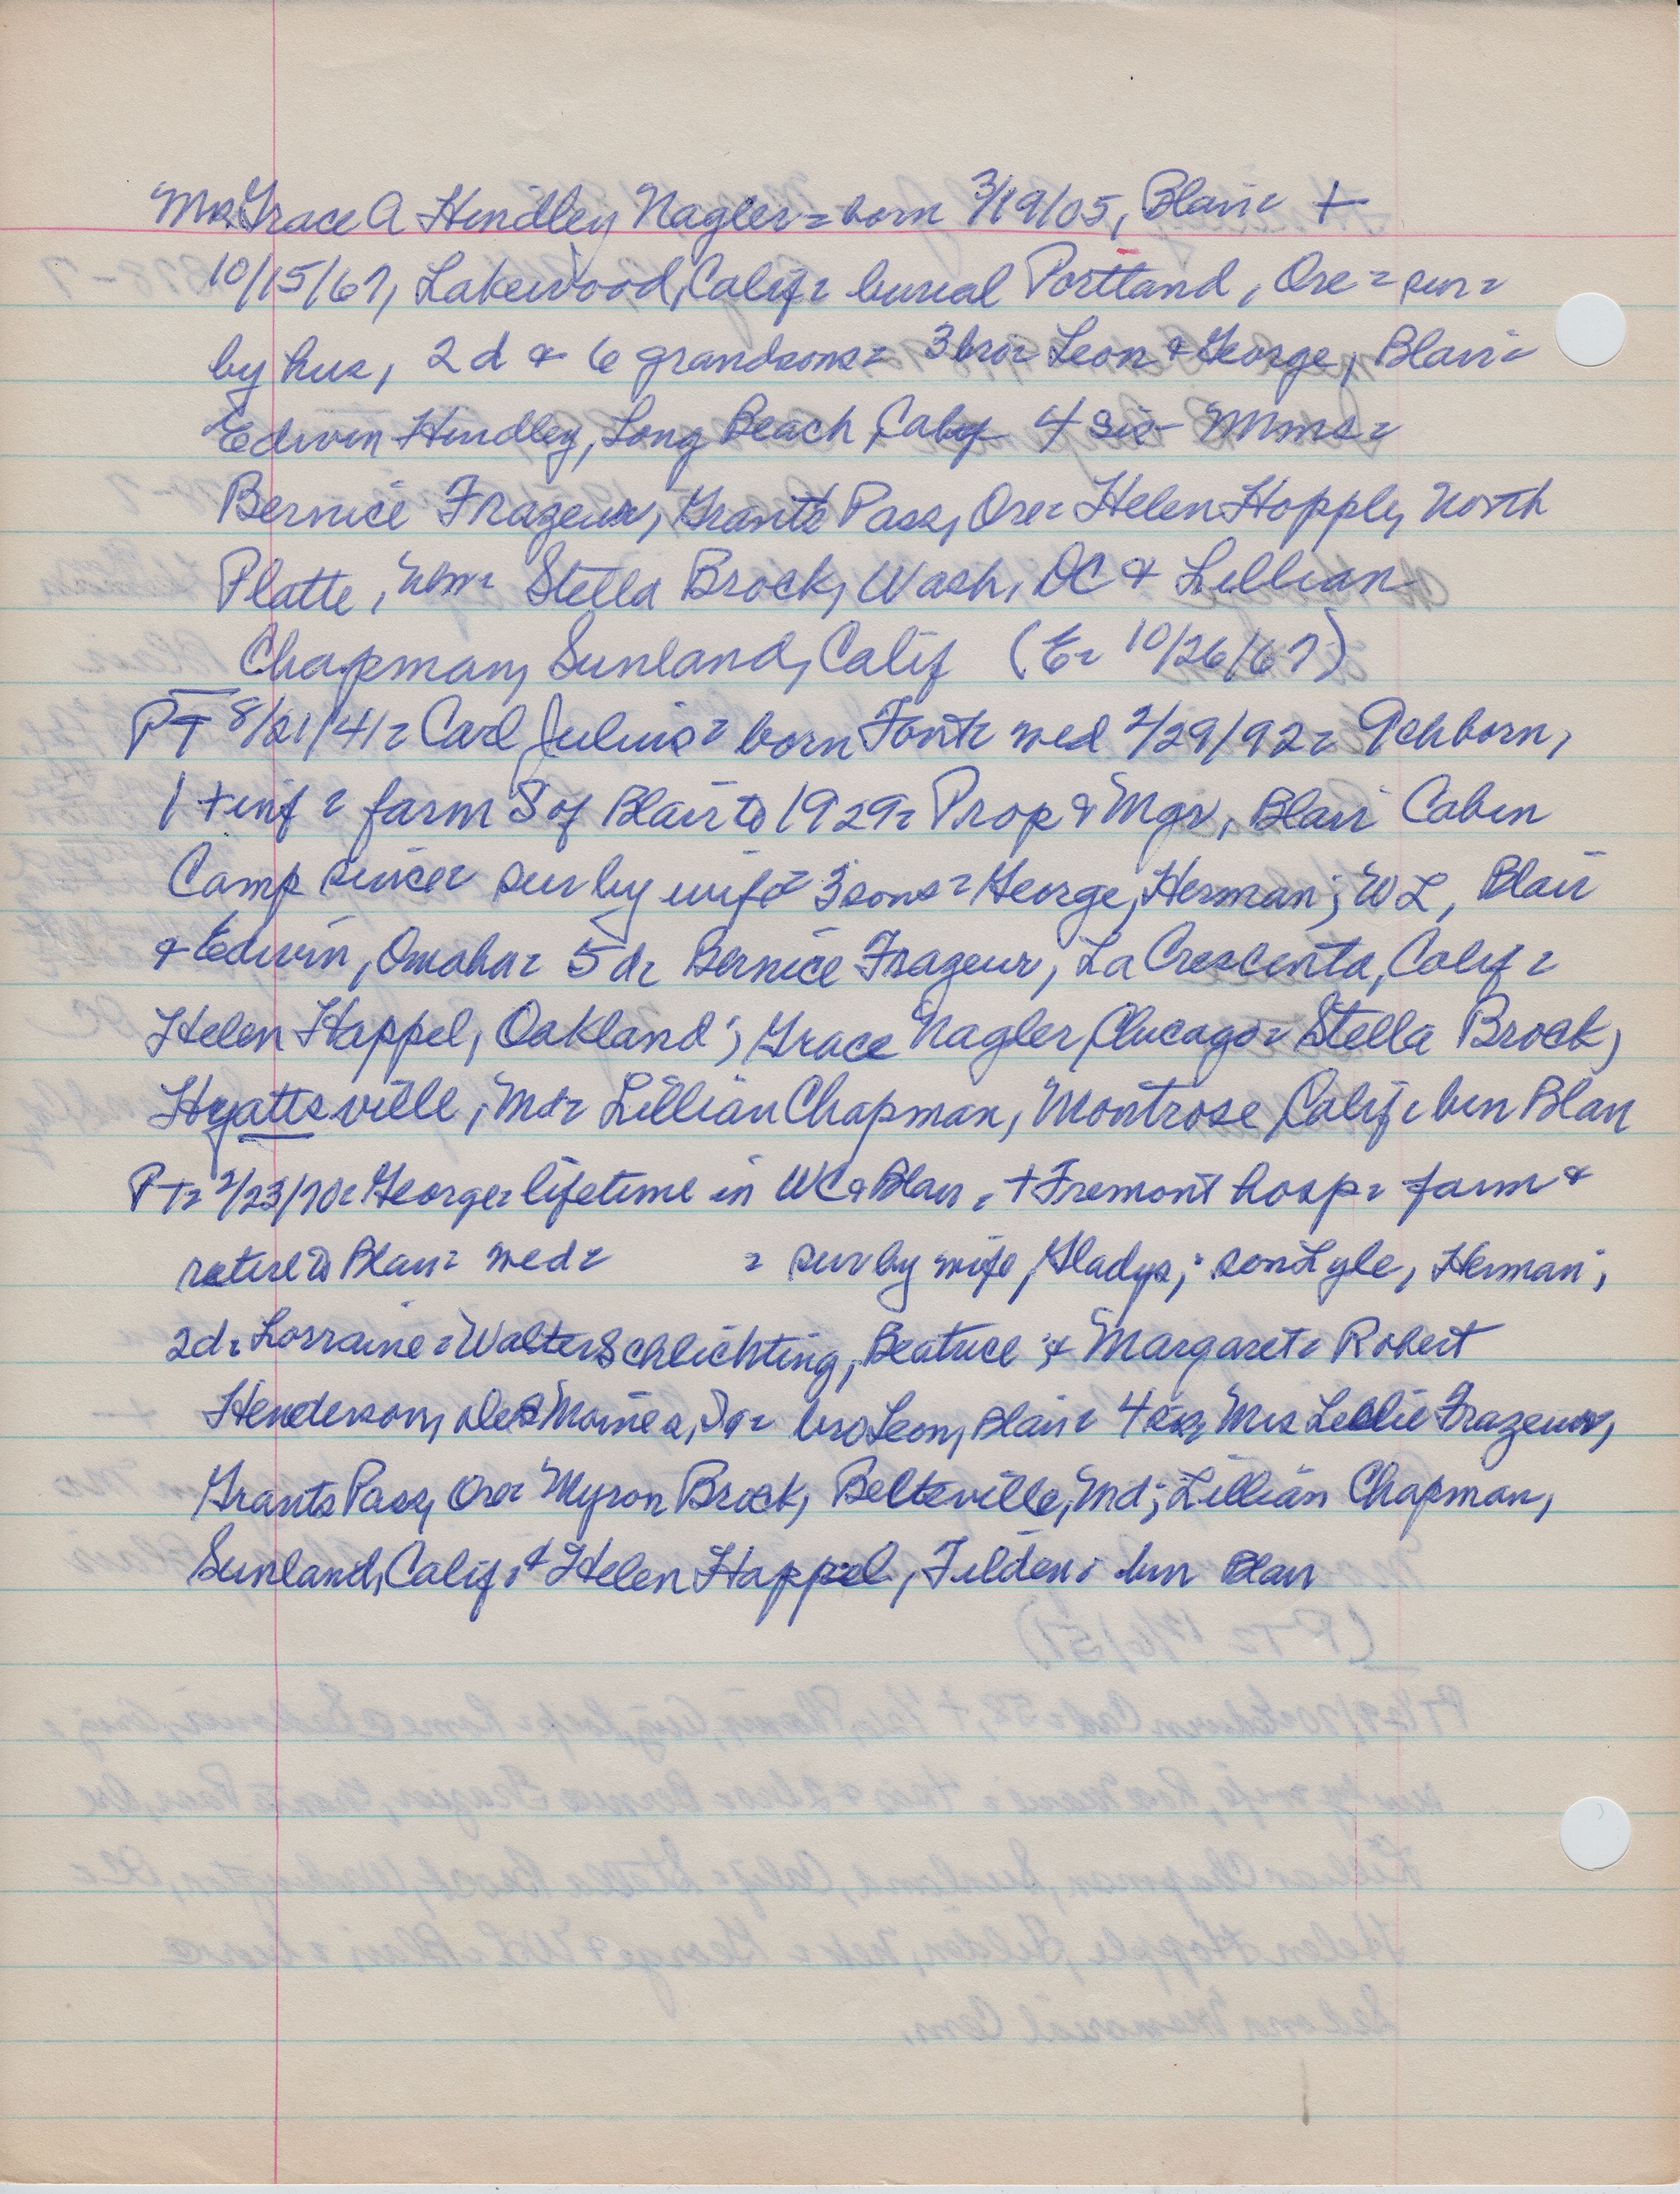 Mrs Grace A Hindley Nagler = born 3/19/05, Blair = +
10/15/67, Lakewood, Calif = burial Portland, Ore = sur =
by hus, 2 d & 6 grandsons = 3 bro = Leon & George, Blair =
Edwin Hindley, Long Beach, Calif 4 sis - Mmes =
Bernice Frazeur, Grants Pass, Ore = Helen Hopply, North
Platte, Stella Brock, Wash, DC & Lillian
Chapman, Sunland, Calif (E = 10/26/67)
PT 8/21/41 = Carl Julius = born Font = wed 2/29/92 = 9 ch born,
1 + inf = farm S of Blair to 1929 = Prop & Mgr, Blair Cabin
Camp since = sur by wife = 3 sons = George, Herman; WL, Blair
& Edwin, Omaha = 5 d = Bernice Frazeur, La Crescenta, Calif =
Helen Happel, Oakland; Grace Nagler, Chicago = Stella Brock,
Hyattsville, Md = Lillian Chapman, Montrose, Calif = bur Blair
PT = 2/23/70 = George = lifetime in WC & Blair, + Fremont hosp = farm &
retire to Blair = wed = = sur by wife, Gladys; son Lyle, Herman;
2d = Lorraine = Walter Schlichting, Beatrice & Margaret = Robert
Henderson, Des Moines, Ia = bro Leon, Blair = 4 sis Mrs Leslie Frazeur,
Grants Pass, Ore = Myron Brock, Beltsville, Md; Lillian Chapman,
Sunland, Calif & Helen Happel, Tilden; bur Blair